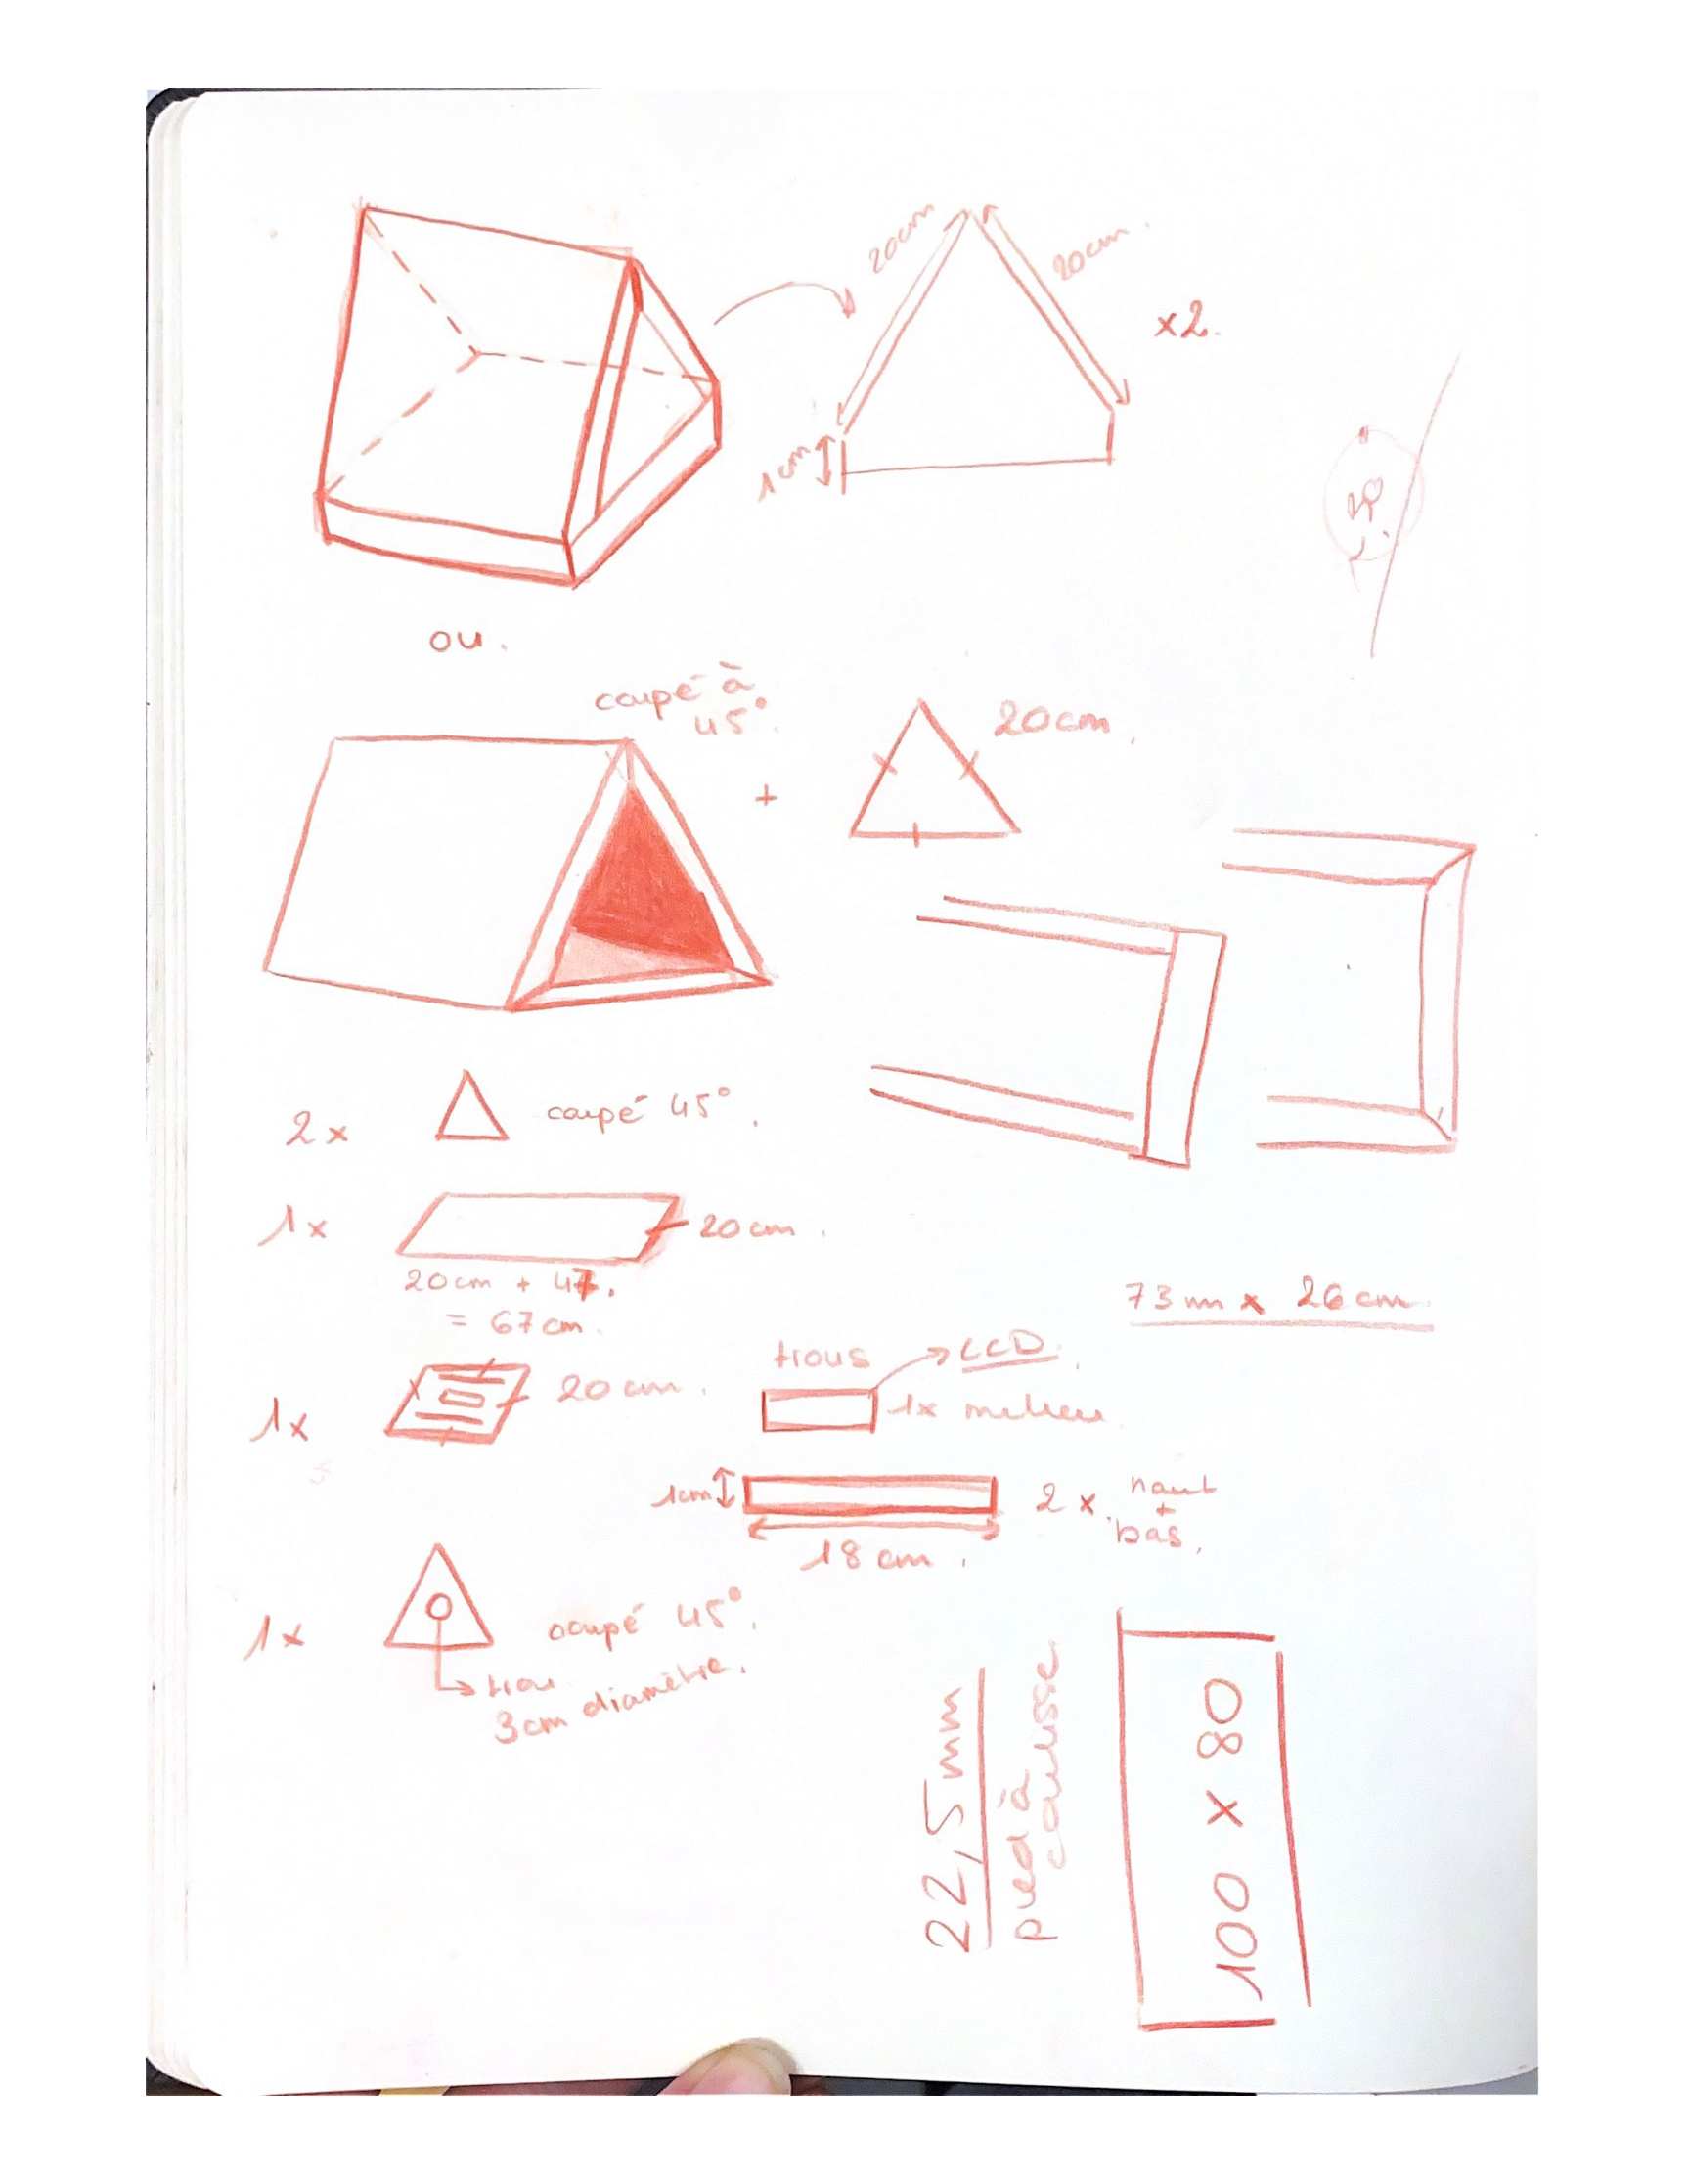 20cm
20cm.
x2.
1cm
ou.
coupé à
45°.
+
20cm.
2x
coupé 45°.
1x
20cm.
20cm + 47.
= 67cm.
73mm x 26cm.
1x
20cm.
trous
LCD.
1x milieu
1cm
18cm.
2x.
haut
+
bas.
1x
coupé 45°.
trou
3cm diamètre.
22,5mm
pied à
coulisse
100 x 80